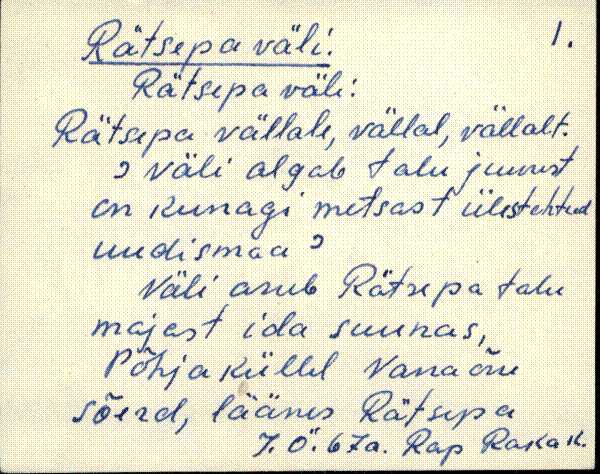 Rätsepa väli. 1.
Rätsepa väli:
Rätsepa vällale, vällal, vällalt.
? väli algab talu juurest
on kunagi metsast ülestehtud
uudismaa ?
Väli asub Rätsepa talu
majast ida suunas,
Põhja küllel Vanaõue
sõerd, läänes Rätsepa
J. Ö. 67a. Rap Raka k.